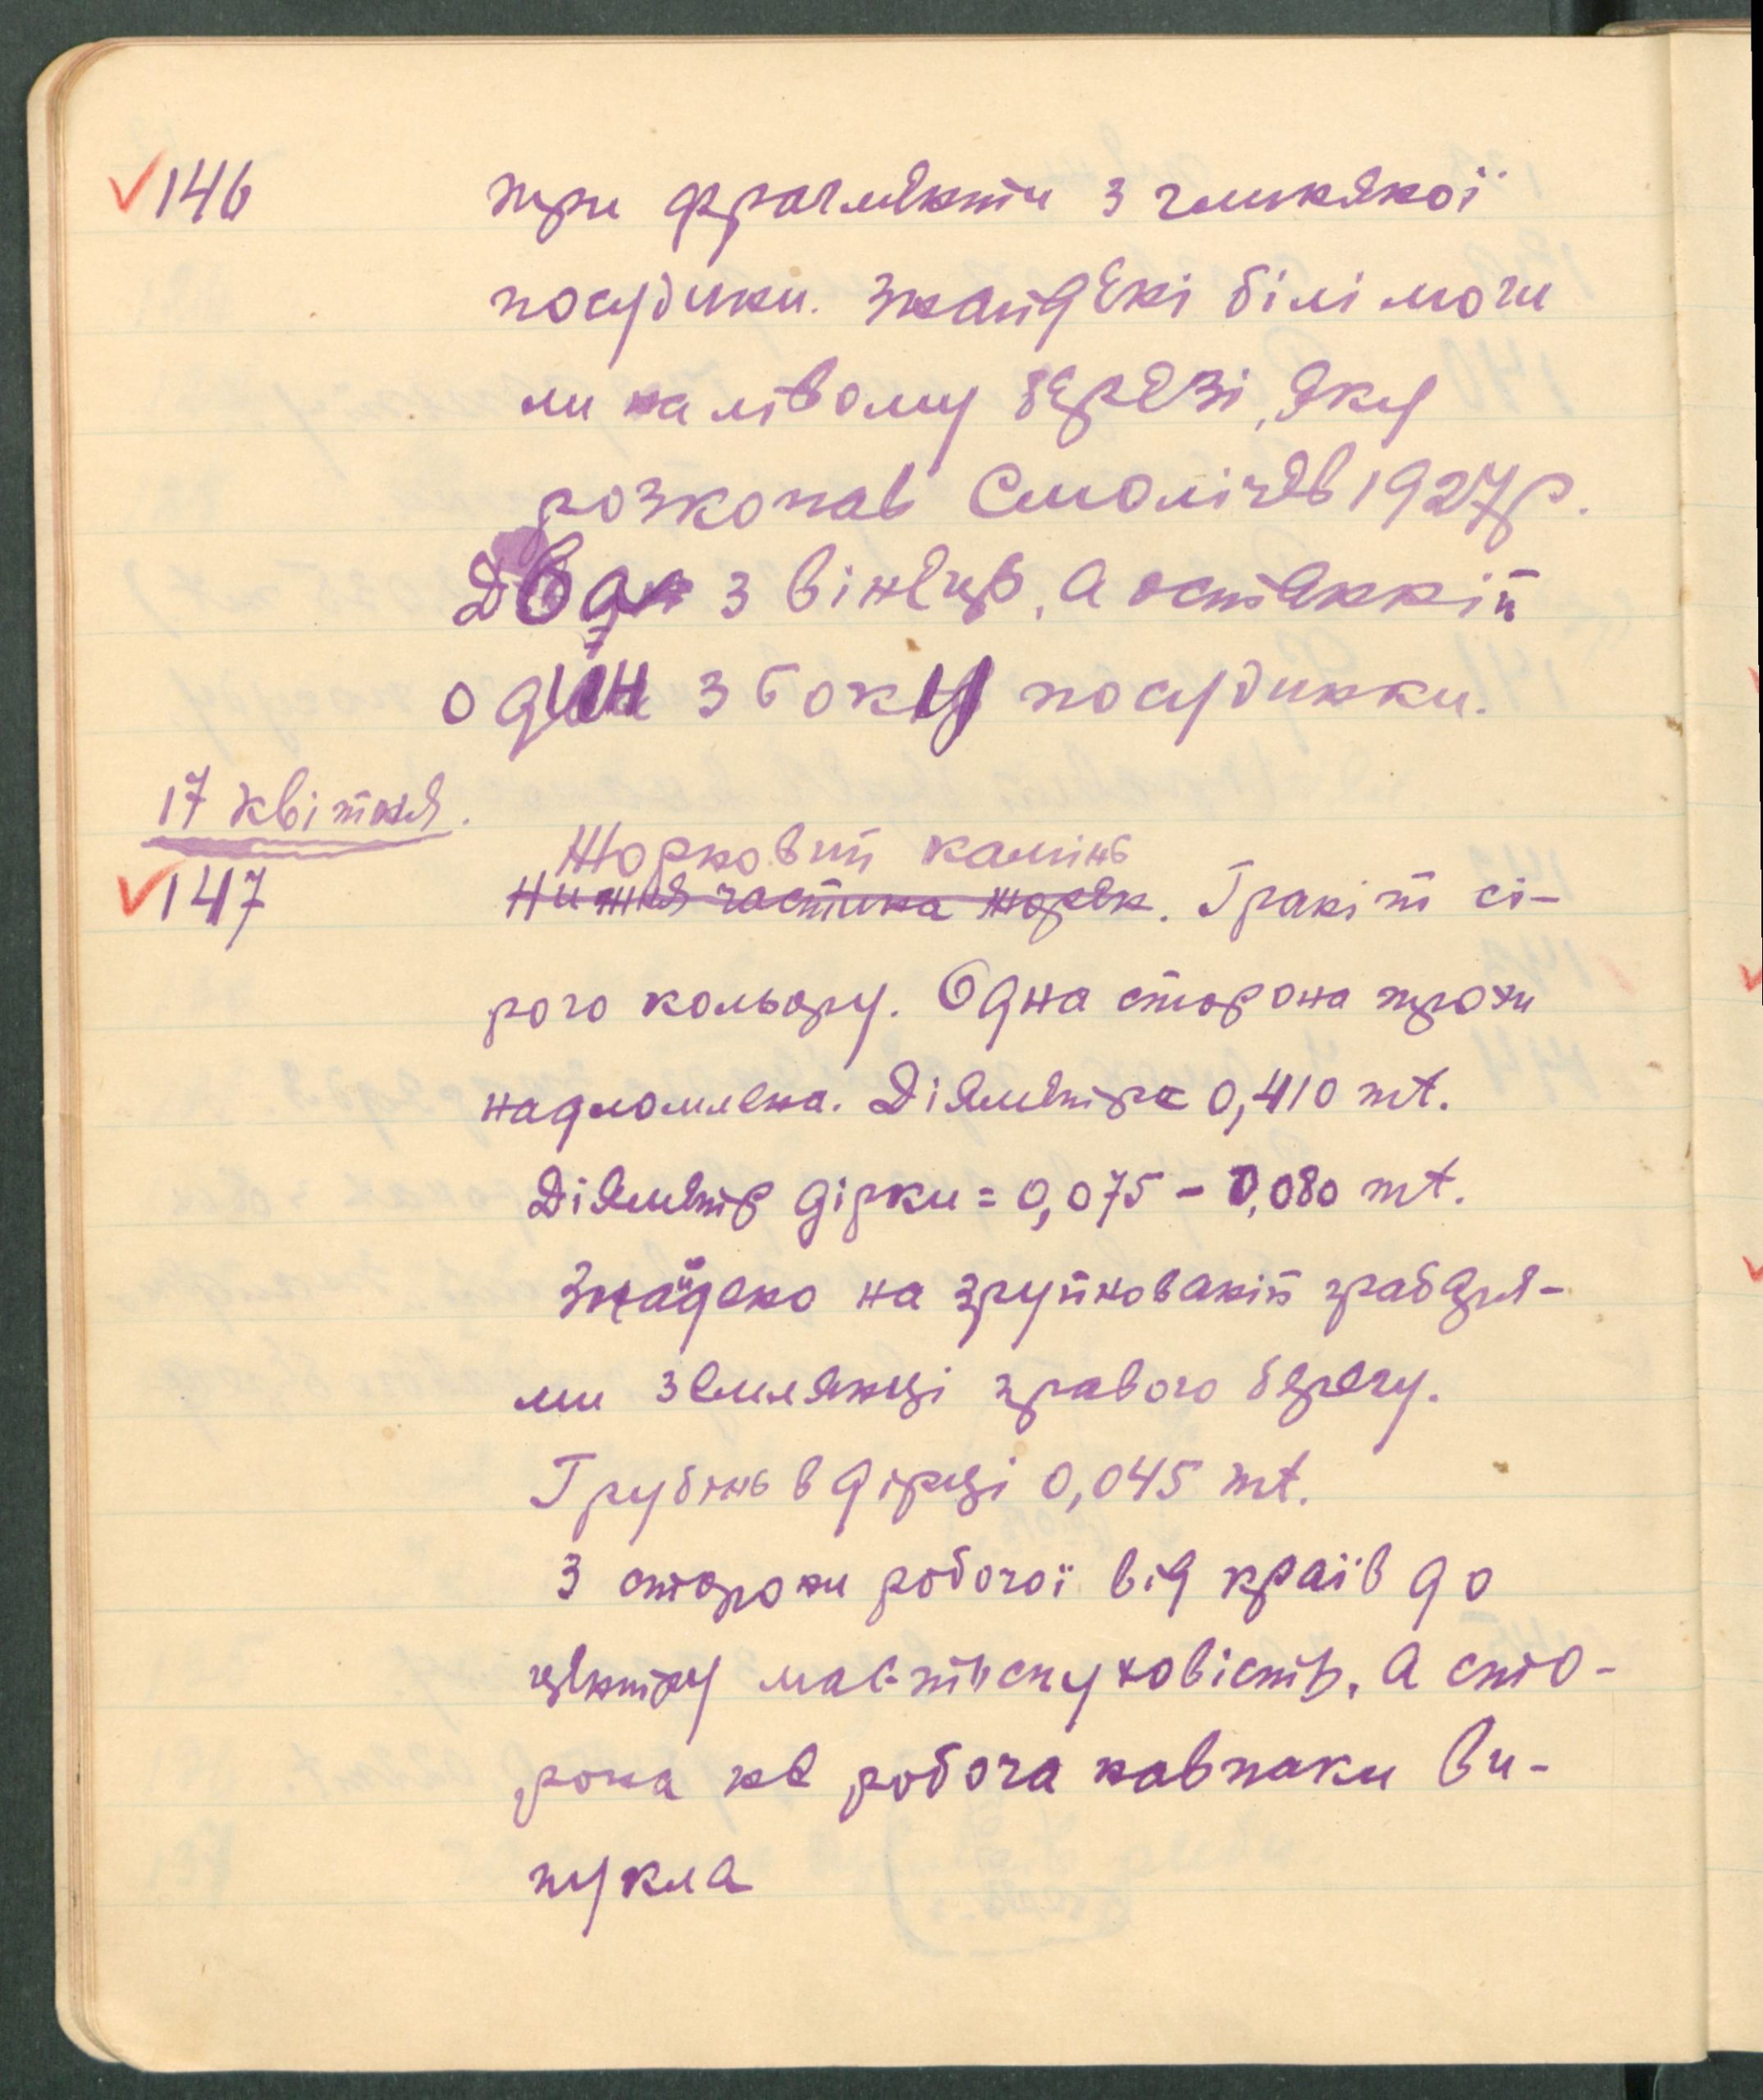 146 три фрагменти з глиняної
посудини. Знайдені білі моги
ли на лівому березі, яку
розкопав Смолічев 1927 р.
Два з вінець, а останній
один з боку посудинки.
17 квітня.
Жорновий камінь
147 Нижня частина жорен. Граніт сі-
рого кольору. Одна сторона трохи
надломлена. Діяметр = 0,410 mt.
Діяметр дірки = 0,075 - 0,080 mt.
Знайдено на зруйнованійграбаря-
ми землянці правого берегу.
Грубінь в дірці 0,045 mt.
З сторони робочої від країв до
центру має випуковість, а сто-
рона не робоча навпаки ви-
пукла